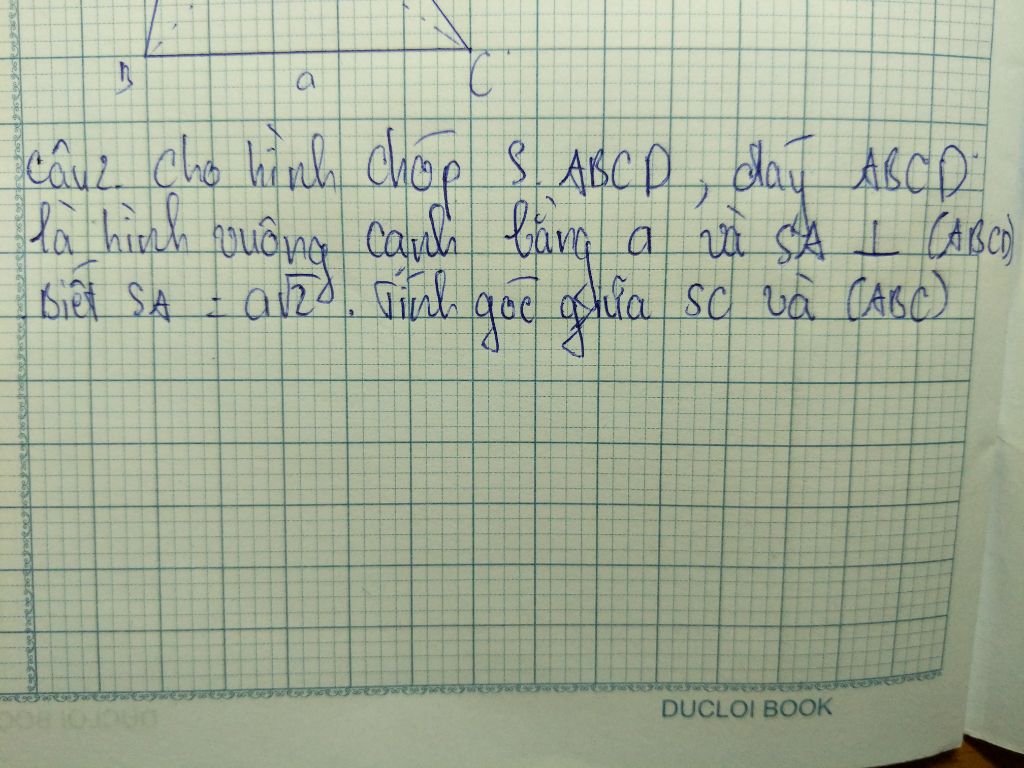 B a C
Câu 2. Cho hình chóp S. ABCD, đáy ABCD
là hình vuông cạnh bằng a và SA ⊥ (ABCD)
Biết SA = a√2. Tính góc giữa SC và (ABC)
DUCLOI BOOK